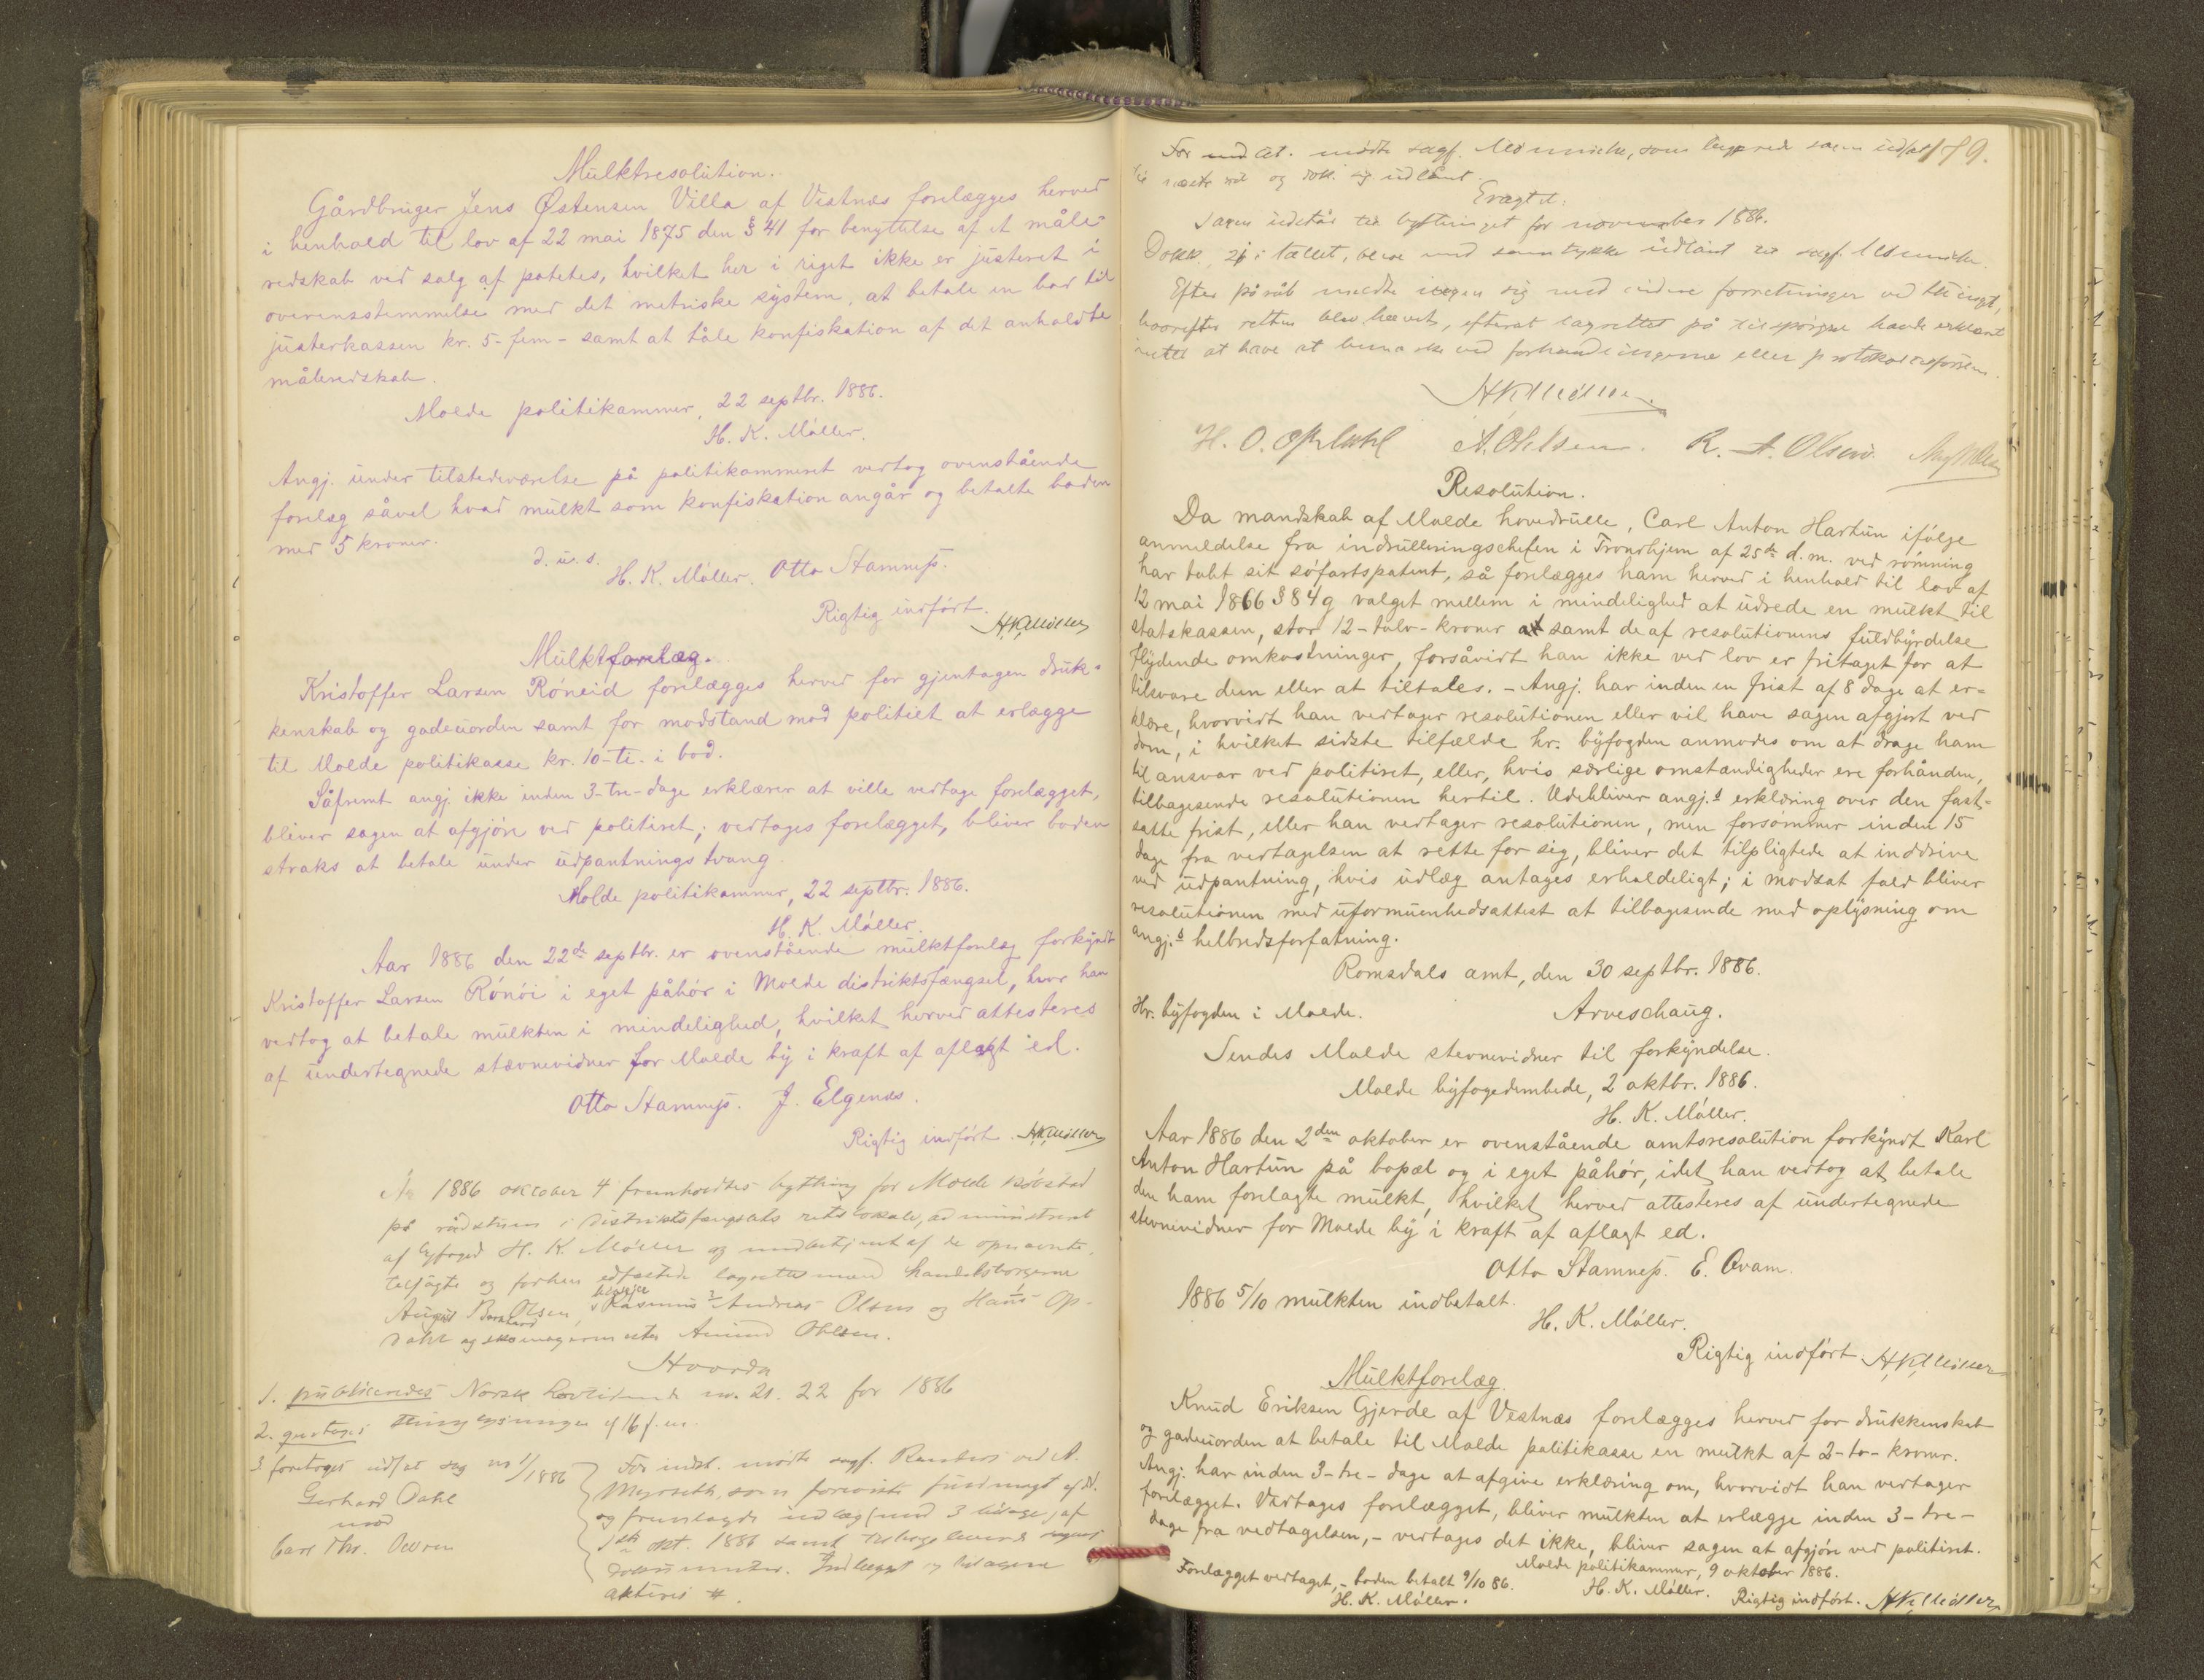 Mulktresolution.
Gårdbruger Jens Østensen Villa af Vestnæs forelægges herved
i henhold til lov af 22 mai 1875 den § 41 for benyttelse af et måle-
redskab ved salg af potetes, hvilket her i riget ikke er justeret i
overensstemmelse med det metriske system, at betale en bod til
justerkassen kr. 5- fem - samt at tåle konfiskation af det anholdte
måleredskab.
Molde politikammer, 22 septbr. 1886.
H. K. Møller.
Angj. under tilstedeværelse på politikammeret vedtog ovenstående
forelæg såvel hvad mulkt som konfiskation angår og betalte boden
med 5 kroner.
d. u. s.
H. K. Møller. Otto Stamnes.
Rigtig indført.
HKMøller
Mulktforelæg.
Kristoffer Larsen Röneid forelægges herved for gjentagen druk-
kenskab og gadeuorden samt for modstand mod politiet at erlægge
til Molde politikasse kr. 10-ti- i bod.
Såfremt angj. ikke inden 3-tre-dage erklærer at ville vedtage forelægget,
bliver sagen at afgjøre ved politiret; vedtages forelægget, bliver boden
straks at betale under udpantningstvang.
Molde politikammer, 22 septbr. 1886.
H. K. Møller.
Aar 1886 den 22de septbr. er ovenstående mulktforlæg forkyndt
Kristoffer Larsen Rönöi i eget påhør i Molde distriktsfængsel, hvor han
vedtog at betale mulkten i mindelighed, hvilket herved attesteres
af undertegnede stævnevidner for Molde by i kraft af aflagt ed.
Otto Stamnes. J. Elgenes.
Rigtig indført. HKMøller
År 1886 oktober 4 fremholdtes bything for Molde købstad
på rådstuen i distriktsfængslets retslokale, administreret
af byfoged H. K. Møller og medbetjent af de opnævnte,
tilsagte og forhen edfæstede lagrettesmænd handelsborgerne
August Olsen, Rasmus Andreas Olsen og Hans Op-
dahl og skomagermester Amund Ohlsen.
Hvorda
1. publiceredes Norsk Lovtidende no. 21. 22 for 1886
2. thinglysninger
3. foretoges udsat sag no 1/1886
Gerhard Dahl
mod
Carl Thr.
For indst. mødte sagf. ved A.
Myrseth, som foreviste fuldmagt af N.
og fremlagde indlæg (med 3 bilage) af
1ste okt. 1886 samt tilbageleverede sagens
dokumenter. Indlægget og bilagene
akteres #.
79.
For indct. mødte sagf. som begjerede sagen udsat
til næste ret og dok. sig udlånt.
Eragtet:
Sagen udstår til bythinget for november 1886.
Dokk. 21 i tallet, bleve med samtykke udlånt til sagf.
Efter påråb meldte ingen sig med videre forretninger ved thinget,
hvorefter retten blev hævet, efterat lagrettet på tilspørgsel havde erklæret
intet at have at bemærke ved forhandlingerne eller protokoltilførslen.
HKMøller.
H. O. Opdahl A. Ohlsen. R. A. Olsen.
Resolution.
Da mandskab af Molde hovedrulle, Carl Anton Hartun ifølge
anmeldelse fra indrulleringschefen i Trondhjem af 25de d.m. ved rømning
har tabt sit søfartspatent, så forelægges ham herved i henhold til lov af
12 mai 1866 § 84 g valget mellem i mindelighed at udrede en mulkt til
statskassen, stor 12-tolv-kroner samt de af resolutionens fuldbyrdelse
flydende omkostninger, forsåvidt han ikke ved lov er fritaget for at
tilsvare dem eller at tiltales. - Angj. har inden en frist af 8 dage at er-
klære, hvorvidt han vedtager resolutionen eller vil have sagen afgjort ved
dom, i hvilket sidste tilfælde hr. byfogden anmodes om at drage ham
til ansvar ved politiret, eller, hvis særlige omstændigheder ere forhånden,
tilbagesende resolutionen hertil. Udebliver angj.s erklæring over den fast-
satte frist, eller han vedtager resolutionen, men forsømmer inden 15
dage fra vedtagelsen at rette for sig, bliver det tilpligtede at inddrive
ved udpantning, hvis udlæg antages erholdeligt; i modsat fald bliver
resolutionen med uformuenhedsattest at tilbagesende med oplysning om
angj.s helbredsforfatning.
Romsdals amt, den 30 septbr. 1886.
Hr. byfogden i Molde.
Arveschaug.
Sendes Molde stevnevidner til forkyndelse.
Molde byfogedembede, 2 oktbr. 1886.
H. K. Møller.
Aar 1886 den 2den oktober er ovenstående amtsresolution forkyndt Karl
Anton Hartun på bopæl og i eget påhør, idet han vedtog at betale
den ham forelagte mulkt, hvilket herved attesteres af undertegnede
stevnevidner for Molde by i kraft af aflagt ed.
Otto Stamnes. E. Qvam.
1886 5/10 mulkten indbetalt.
H. K. Møller.
Rigtig indført. HKMøller
Mulktforelæg.
Knud Eriksen Gjerde af Vestnæs forelægges herved for drukkenskab
og gadeuorden at betale til Molde politikasse en mulkt af 2-to-kroner.
Angj. har inden 3-tre-dage at afgive erklæring om, hvorvidt han vedtager
forelægget. Vedtages forelægget, bliver mulkten at erlægge inden 3-tre-
dage fra vedtagelsen, - vedtages det ikke, bliver sagen at afgjøre ved politiret.
Molde politikammer, 9 oktober 1886.
Forelægget vedtaget, - boden betalt 9/10 86.
H. K. Møller. Rigtig indført. HKMøller
H. K. Møller.